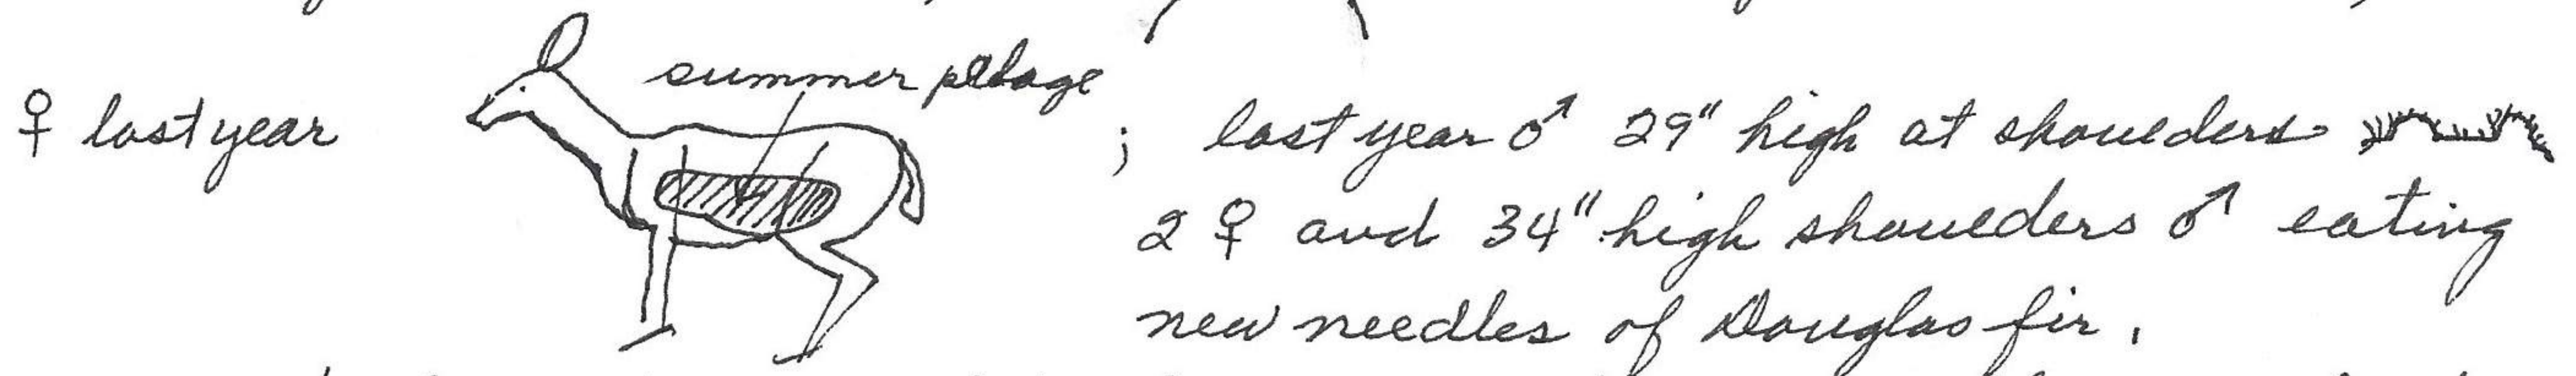 summer pelage
♀ last year
; last year ♂ 29" high at shoulders
2 ♀ and 34" high shoulders ♂ eating
new needles of Douglas fir.